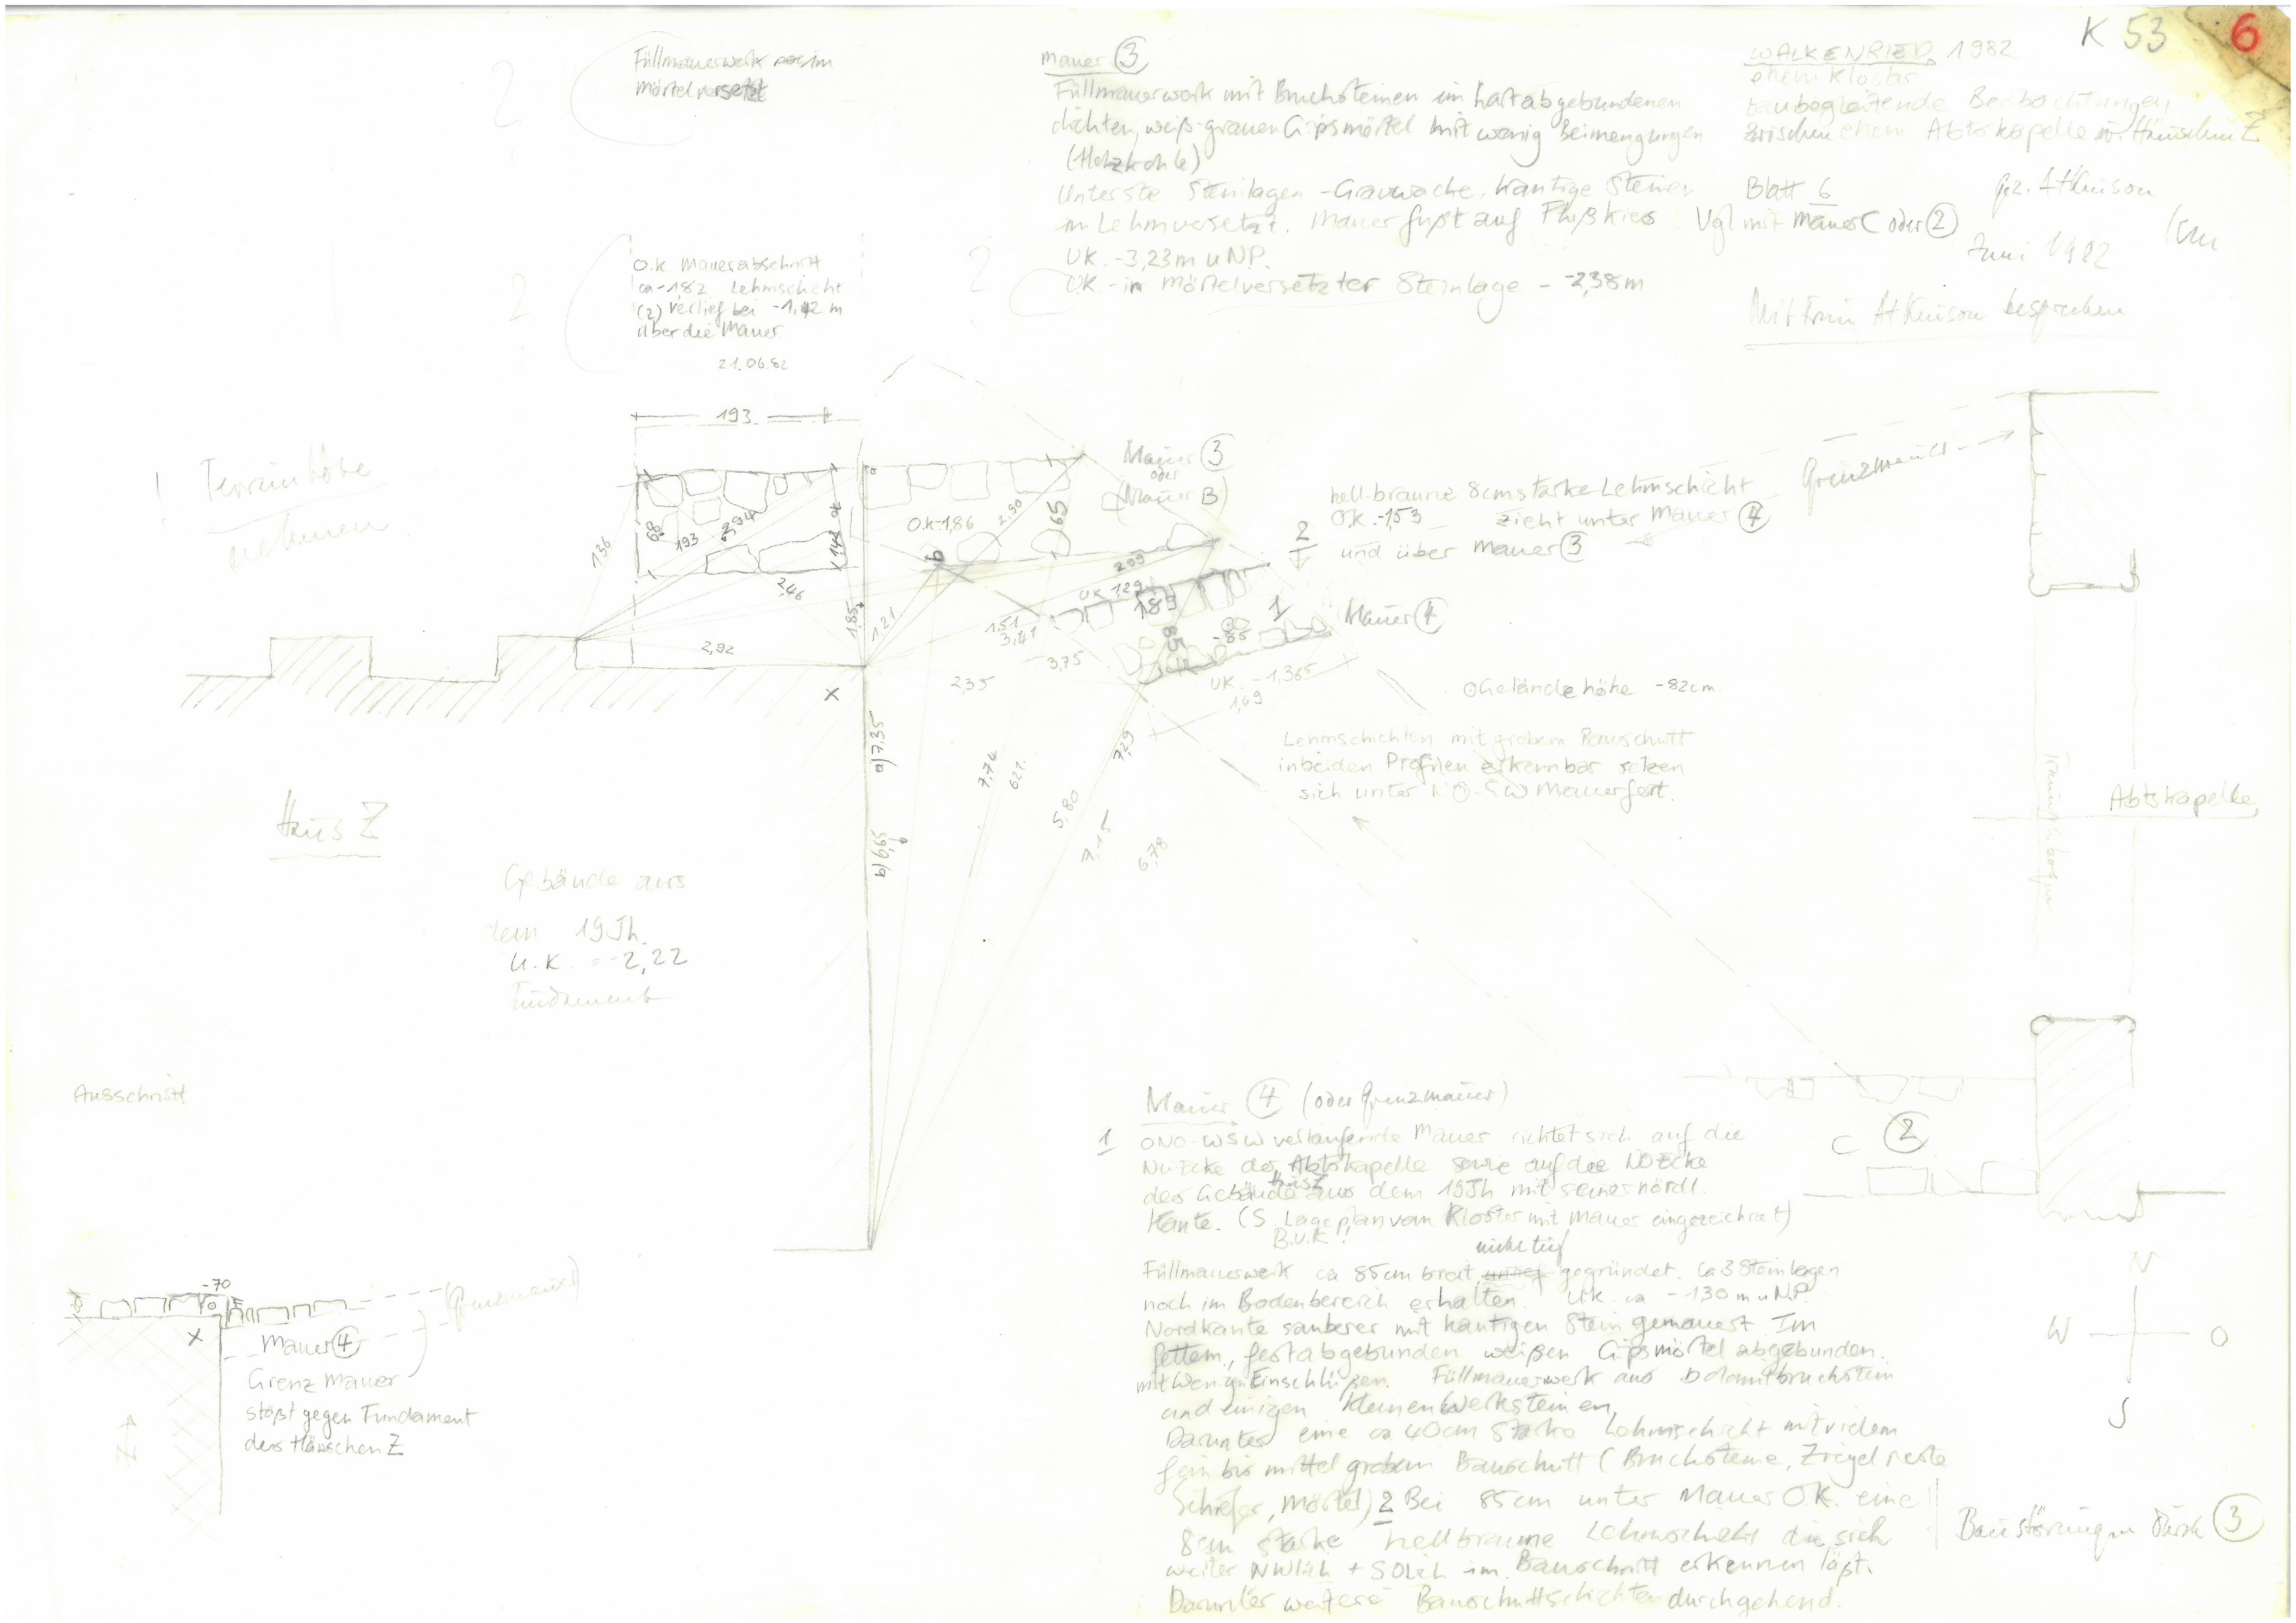 K 53
6
WALKENRIED 1982
ehem Kloster
baubegleitende Beobachtungen
zwischen ehem Abtskapelle u. Häuschen Z
Blatt 6
gez. Atkinson
Juni 1982
Mit Frau Atkinson besprechen
Füllmauerwerk
Mörtel versetzt
2
Mauer 3
Füllmauerwerk mit Bruchsteinen im hart abgebundenen
dichten, weiß-grauen Gipsmörtel mit wenig Beimengungen
(Holzkohle)
Unterste Steinlagen - Grauwacke, kantige Steine
in Lehm versetzt. Mauer fußt auf Flußkies Vgl mit Mauer C oder 2
UK. -3,23m u NP.
OK - in Mörtelversetzter Steinlage - -2,38m
2
2
O.K. Mauerabschnitt
ca -1,82 Lehmschicht
(2) verlief bei -1,42 m
über die Mauer
21.06.82
193
! Terrainhöhe
nehmen
Mauer 3
oder
(Mauer B)
hellbraune 8cm starke Lehmschicht
O.K. -1,53 zieht unter Mauer 4
und über Mauer 3
Grenzmauer
136
68
193
2,94
1,42
2,46
O.K-1,86
2,90
65
2
299
UK 129
189
1
Mauer 4
1,85
1,21
1,51
3,41
-85
85
2,92
3,75
2,35
UK. -1,365
1,69
X
Geländehöhe -82cm
a) 7,35
b) 6,65
7,74
621
7,29
5,80
7,15
6,78
Lehmschichten mit grobem Bauschutt
in beiden Profilen erkennbar setzen
sich unter NO-SW Mauer fort.
Haus Z
Gebäude aus
dem 19 Jh.
U.K. = -2,22
Fundament
Abtskapelle
Ausschnitt
C 2
Mauer 4 (oder Grenzmauer)
1 ONO-WSW verlaufende Mauer richtet sich auf die
NW Ecke der Abtskapelle sowie auf die NO Ecke
des Gebäude Haus Z aus dem 19 Jh mit seiner nördl.
Kante. (S. Lageplan vom Kloster mit Mauer eingezeichnet)
B.u.K!
nicht tief
Füllmauerwerk ca 85cm breit, gegründet. ca 3 Steinlagen
noch im Bodenbereich erhalten. UK. ca -1,30 m u NP.
Nordkante sauberer mit kantigen Stein gemauert. Im
fettem, fest abgebunden weißen Gipsmörtel abgebunden.
mit wenig Einschlüßen. Füllmauerwerk aus Dolomitbruchstein
und einigen kleinen Werksteinen,
Darunter eine ca 40cm starke Lehmschicht mit vielem
fein bis mittel grobem Bauschutt (Bruchsteine, Ziegelreste
Schiefer, Mörtel) 2 Bei 85cm unter Mauer O.K. eine
8cm starke hellbraune Lehmschicht die sich
weiter NWlich + SOlich im Bauschnitt erkennen läßt.
Darunter weitere Bauschuttschichten durchgehend.
Baustörungen durch 3
N
W
O
S
-70
X
Mauer 4
(Grenzmauer)
Grenzmauer
stößt gegen Fundament
des Häuschen Z
N